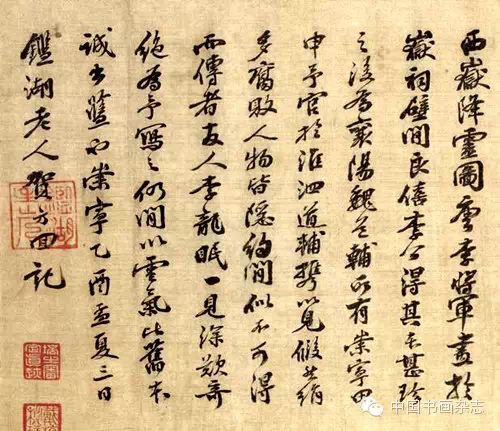 西嶽降靈圖唐李將軍畫於
嶽祠壁間良僖李公得其本甚珍
之後為襄陽魏公輔所有崇寧甲
申予官於淮泗道輔携以見假其絹
多腐敗人物皆隱約間似不可得
而傳者友人李龍眠一見深歎奇
絶為予寫之仍間以雲氣比舊本
誠出藍也崇寧乙酉孟夏三日
鑑湖老人賀方回記
中国书画杂志